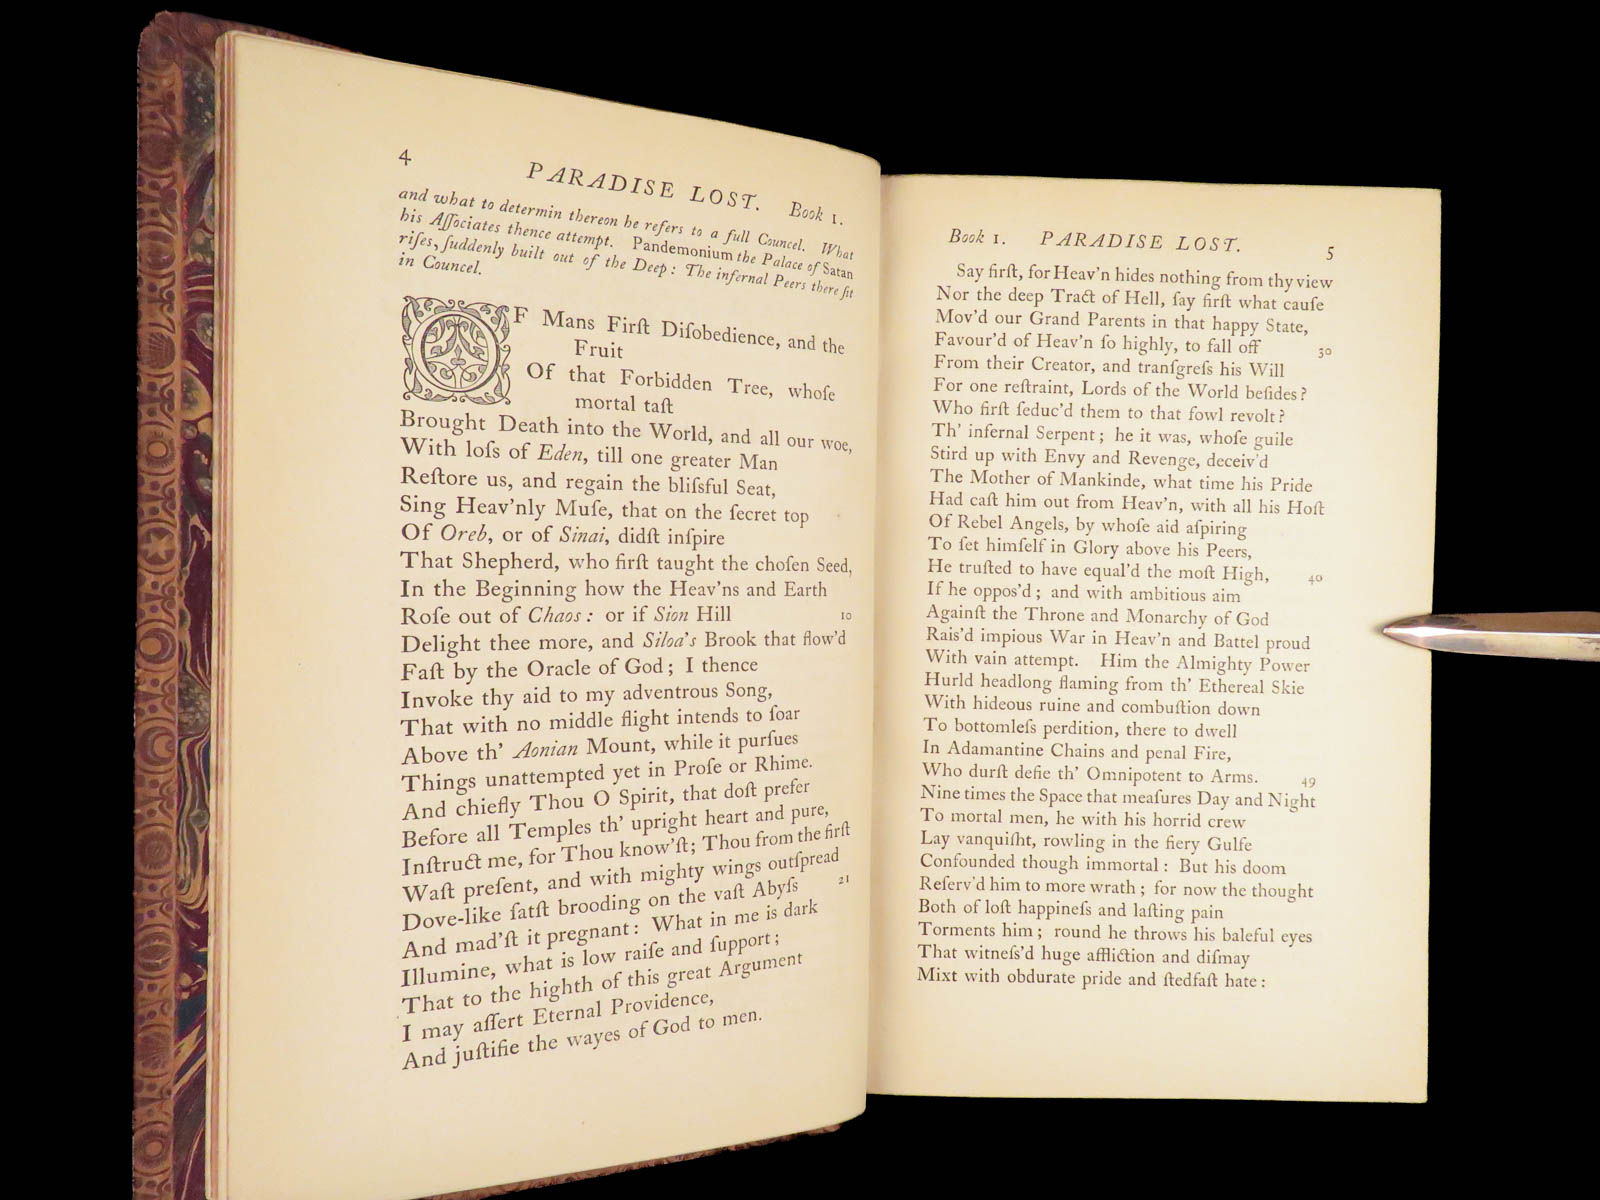 4 PARADISE LOST. Book 1.
and what to determin thereon he refers to a full Councel. What
his Aſſociates thence attempt. Pandemonium the Palace of Satan
riſes, ſuddenly built out of the Deep: The infernal Peers there ſit
in Councel.
OF Mans Firſt Diſobedience, and the
Fruit
Of that Forbidden Tree, whoſe
mortal taſt
Brought Death into the World, and all our woe,
With loſs of Eden, till one greater Man
Reſtore us, and regain the bliſsful Seat,
Sing Heav'nly Muſe, that on the ſecret top
Of Oreb, or of Sinai, didſt inſpire
That Shepherd, who firſt taught the choſen Seed,
In the Beginning how the Heav'ns and Earth
Roſe out of Chaos: or if Sion Hill 10
Delight thee more, and Siloa's Brook that flow'd
Faſt by the Oracle of God; I thence
Invoke thy aid to my adventrous Song,
That with no middle flight intends to ſoar
Above th' Aonian Mount, while it purſues
Things unattempted yet in Proſe or Rhime.
And chiefly Thou O Spirit, that doſt prefer
Before all Temples th' upright heart and pure,
Inſtruct me, for Thou know'ſt; Thou from the firſt
Waſt preſent, and with mighty wings outſpread
Dove-like ſatſt brooding on the vaſt Abyſs 21
And mad'ſt it pregnant: What in me is dark
Illumine, what is low raiſe and ſupport;
That to the highth of this great Argument
I may aſſert Eternal Providence,
And juſtifie the wayes of God to men.
Book 1. PARADISE LOST. 5
Say firſt, for Heav'n hides nothing from thy view
Nor the deep Tract of Hell, ſay firſt what cauſe
Mov'd our Grand Parents in that happy State,
Favour'd of Heav'n ſo highly, to fall off 30
From their Creator, and tranſgreſs his Will
For one reſtraint, Lords of the World beſides?
Who firſt ſeduc'd them to that fowl revolt?
Th' infernal Serpent; he it was, whoſe guile
Stird up with Envy and Revenge, deceiv'd
The Mother of Mankinde, what time his Pride
Had caſt him out from Heav'n, with all his Hoſt
Of Rebel Angels, by whoſe aid aſpiring
To ſet himſelf in Glory above his Peers,
He truſted to have equal'd the moſt High, 40
If he oppos'd; and with ambitious aim
Againſt the Throne and Monarchy of God
Rais'd impious War in Heav'n and Battel proud
With vain attempt. Him the Almighty Power
Hurld headlong flaming from th' Ethereal Skie
With hideous ruine and combuſtion down
To bottomleſs perdition, there to dwell
In Adamantine Chains and penal Fire,
Who durſt defie th' Omnipotent to Arms. 49
Nine times the Space that meaſures Day and Night
To mortal men, he with his horrid crew
Lay vanquiſht, rowling in the fiery Gulfe
Confounded though immortal: But his doom
Reſerv'd him to more wrath; for now the thought
Both of loſt happineſs and laſting pain
Torments him; round he throws his baleful eyes
That witneſs'd huge affliction and diſmay
Mixt with obdurate pride and ſtedfaſt hate: